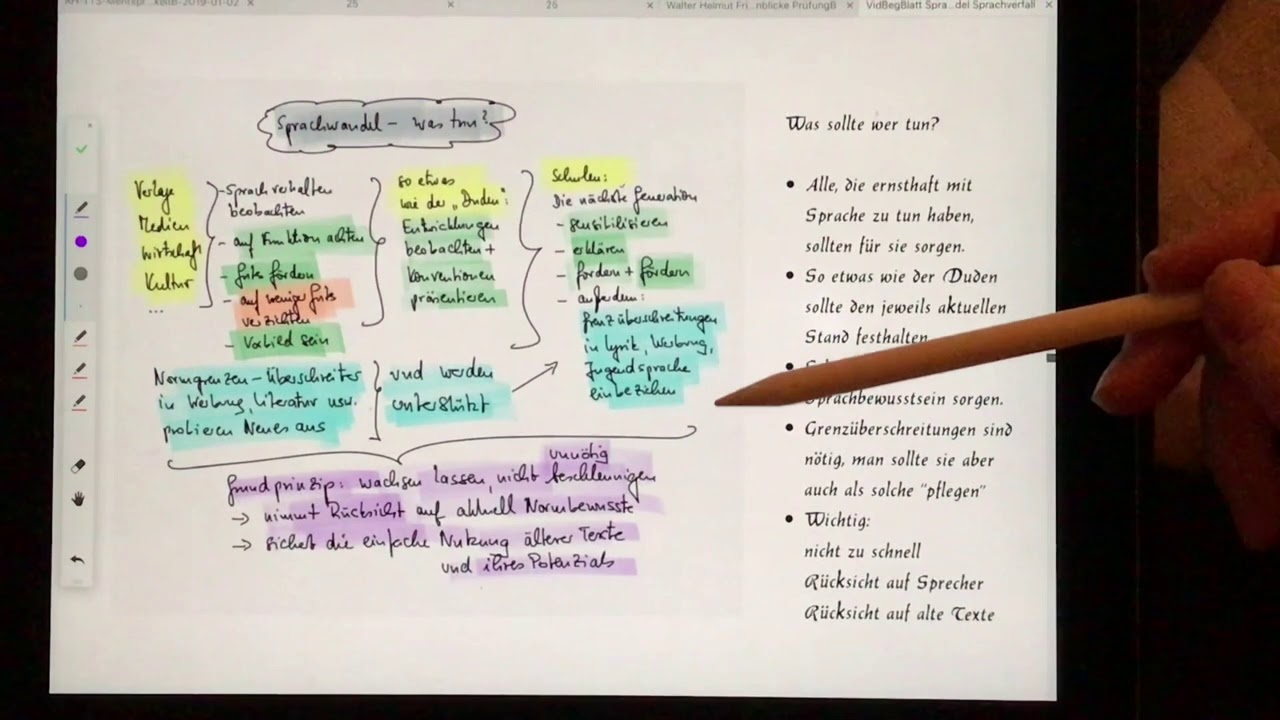 25
26
Walter Helmut Fri...nblicke PrüfungB
VidBegBlatt Spra...del Sprachverfall
Sprachwandel – was tun?
Verlage
Medien
Wirtschaft
Kultur
...
- Sprachverhalten
beobachten
- auf Funktion achten
- Gutes fördern
- auf weniger Gutes
verzichten
- Vorbild sein
so etwas
wie der "Duden":
Entwicklungen
beobachten +
Konventionen
präsentieren
Schulen:
Die nächste Generation
- sensibilisieren
- erklären
- fordern + fördern
- außerdem:
Grenzüberschreitungen
in Lyrik, Werbung,
Jugendsprache
einbeziehen
Normgrenzen-Überschreiter
in Werbung, Literatur usw.
probieren Neues aus
und werden
unterstützt
unnötig
Grundprinzip: wachsen lassen, nicht beschleunigen
→ nimmt Rücksicht auf aktuell Normbewusste
→ sichert die einfache Nutzung älterer Texte
und ihres Potenzials
Was sollte wer tun?
• Alle, die ernsthaft mit
Sprache zu tun haben,
sollten für sie sorgen.
• So etwas wie der Duden
sollte den jeweils aktuellen
Stand festhalten
Sprachbewusstsein sorgen.
• Grenzüberschreitungen sind
nötig, man sollte sie aber
auch als solche "pflegen"
• Wichtig:
nicht zu schnell
Rücksicht auf Sprecher
Rücksicht auf alte Texte